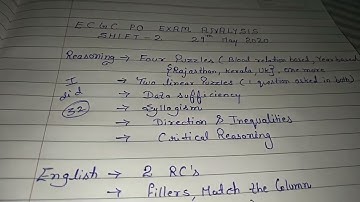 ECGC PO EXAM ANALYSIS
SHIFT-2 29th May 2020
Reasoning → Four Puzzles (Blood relation based, Year based
{Rajasthan, Kerala, UK}, one more
I → Two linear Puzzles (1 question asked in both)
did → Data sufficiency
32 → Syllogism
→ Direction & Inequalities
→ Critical Reasoning
English → 2 RC's
→ fillers, Match the Column